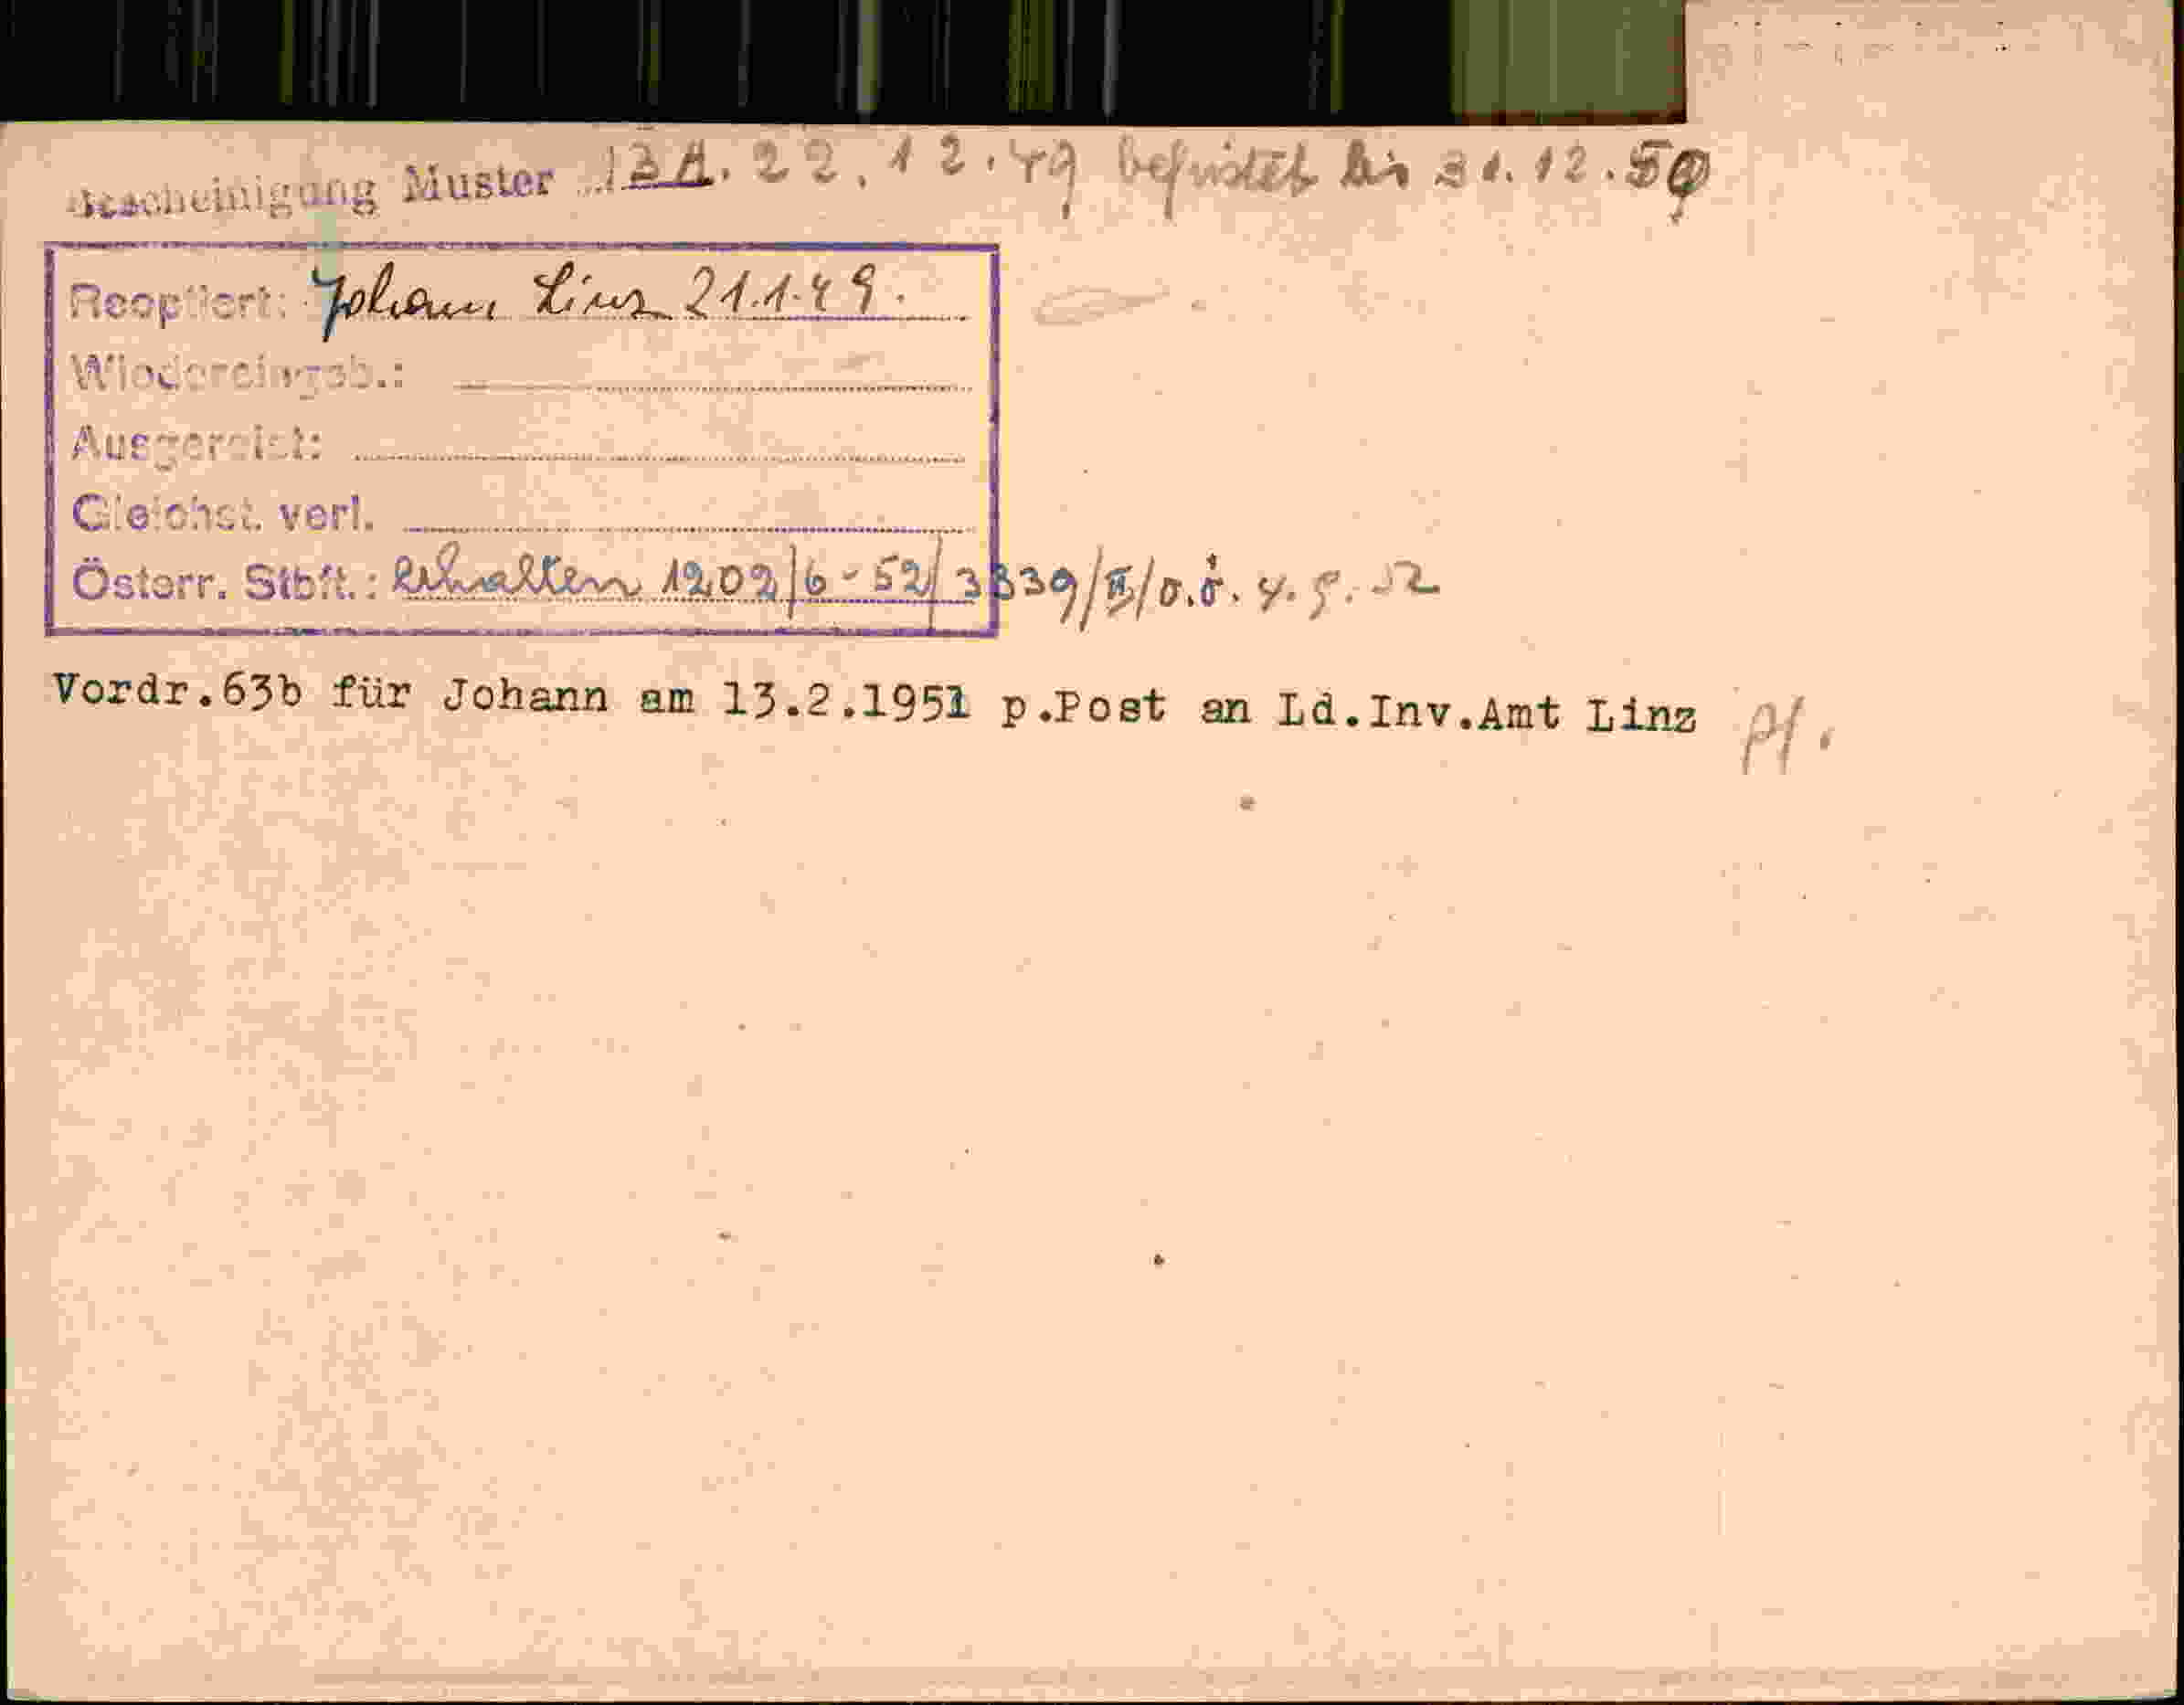 Bescheinigung Muster 13A. 22.12.49 befristet bis 31.12.50
Reoptiert: Johann Linz 21.1.49.
Wiedereingeb.:
Ausgereist:
Gleichst. verl.
Österr. Stbft.: Erhalten 1202/6-52/3839/II/O.Ö. 4.5.52
Vordr.63b für Johann am 13.2.1951 p.Post an Ld.Inv.Amt Linz